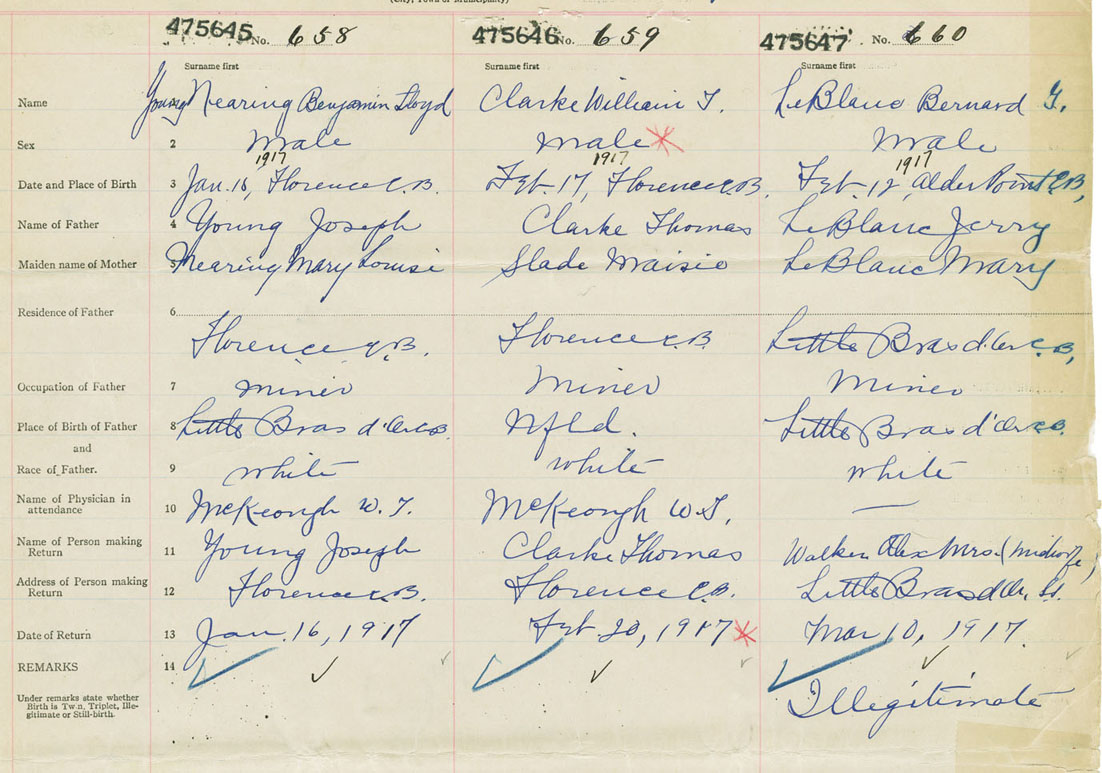 (City, Town or Municipality)
475645 No. 658 475646 No. 659 475647 No. 660
Surname first Surname first Surname first
Name Young Nearing Benjamin Lloyd Clarke William T. LeBlanc Bernard J.
Sex 2 Male Male Male
1917 1917 1917
Date and Place of Birth 3 Jan. 16, Florence C.B. Feb. 17, Florence C.B. Feb. 12, Alder Point C.B,
Name of Father 4 Young Joseph Clarke Thomas LeBlanc Jerry
Maiden name of Mother Nearing Mary Louise Slade Maisie LeBlanc Mary
Residence of Father 6
Florence C.B. Florence C.B Little Bras d'Or C.B,
Occupation of Father 7 Miner Miner Miner
Place of Birth of Father 8 Little Bras d'Or C.B. Nfld. Little Bras d'Or C.B.
and
Race of Father. 9 White White White
Name of Physician in
attendance 10 McKeough W. T. McKeough W. T. —
Name of Person making
Return 11 Young Joseph Clarke Thomas Walker Alex Mrs. (Midwife)
Address of Person making
Return 12 Florence C.B. Florence C.B. Little Bras d'Or,
Date of Return 13 Jan. 16, 1917 Feb. 20, 1917 Mar 10, 1917.
REMARKS 14
Under remarks state whether
Birth is Twin, Triplet, Ille-
gitimate or Still-birth.
Illegitimate